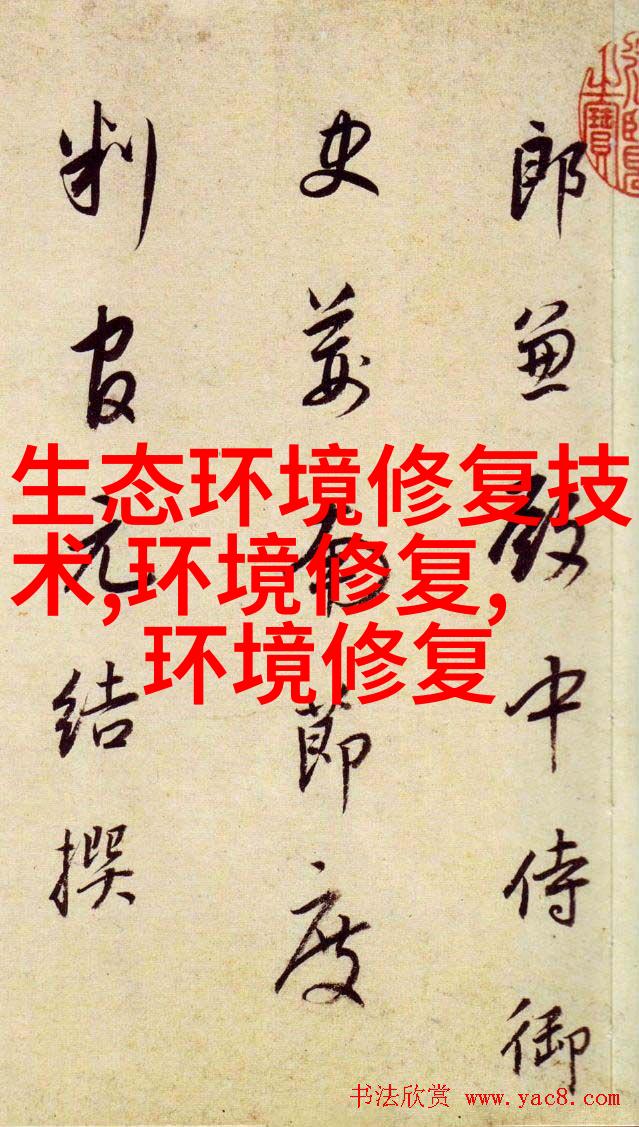 郎兼殿中侍御
史荊南節度
判官元結撰
生态环境修复技
术,环境修复,
环境修复
书法欣赏 www.yac8.com